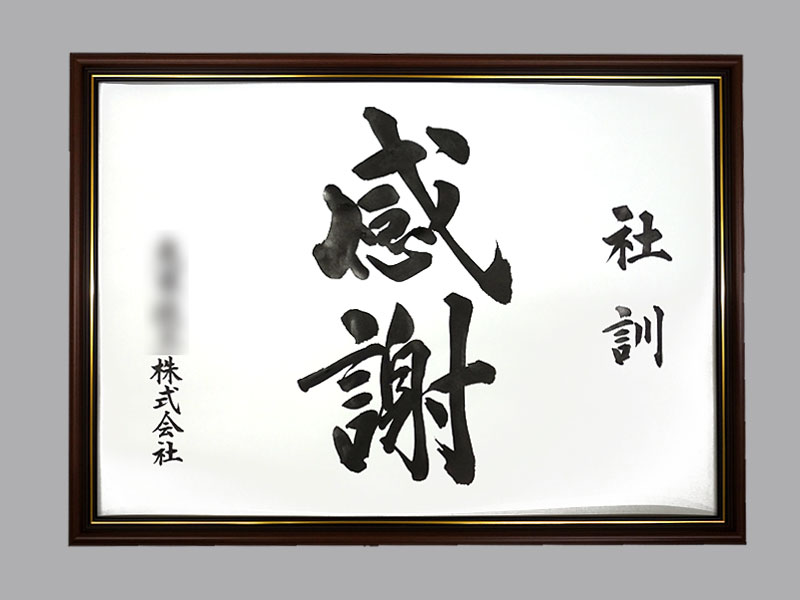 社訓
感謝
株式会社